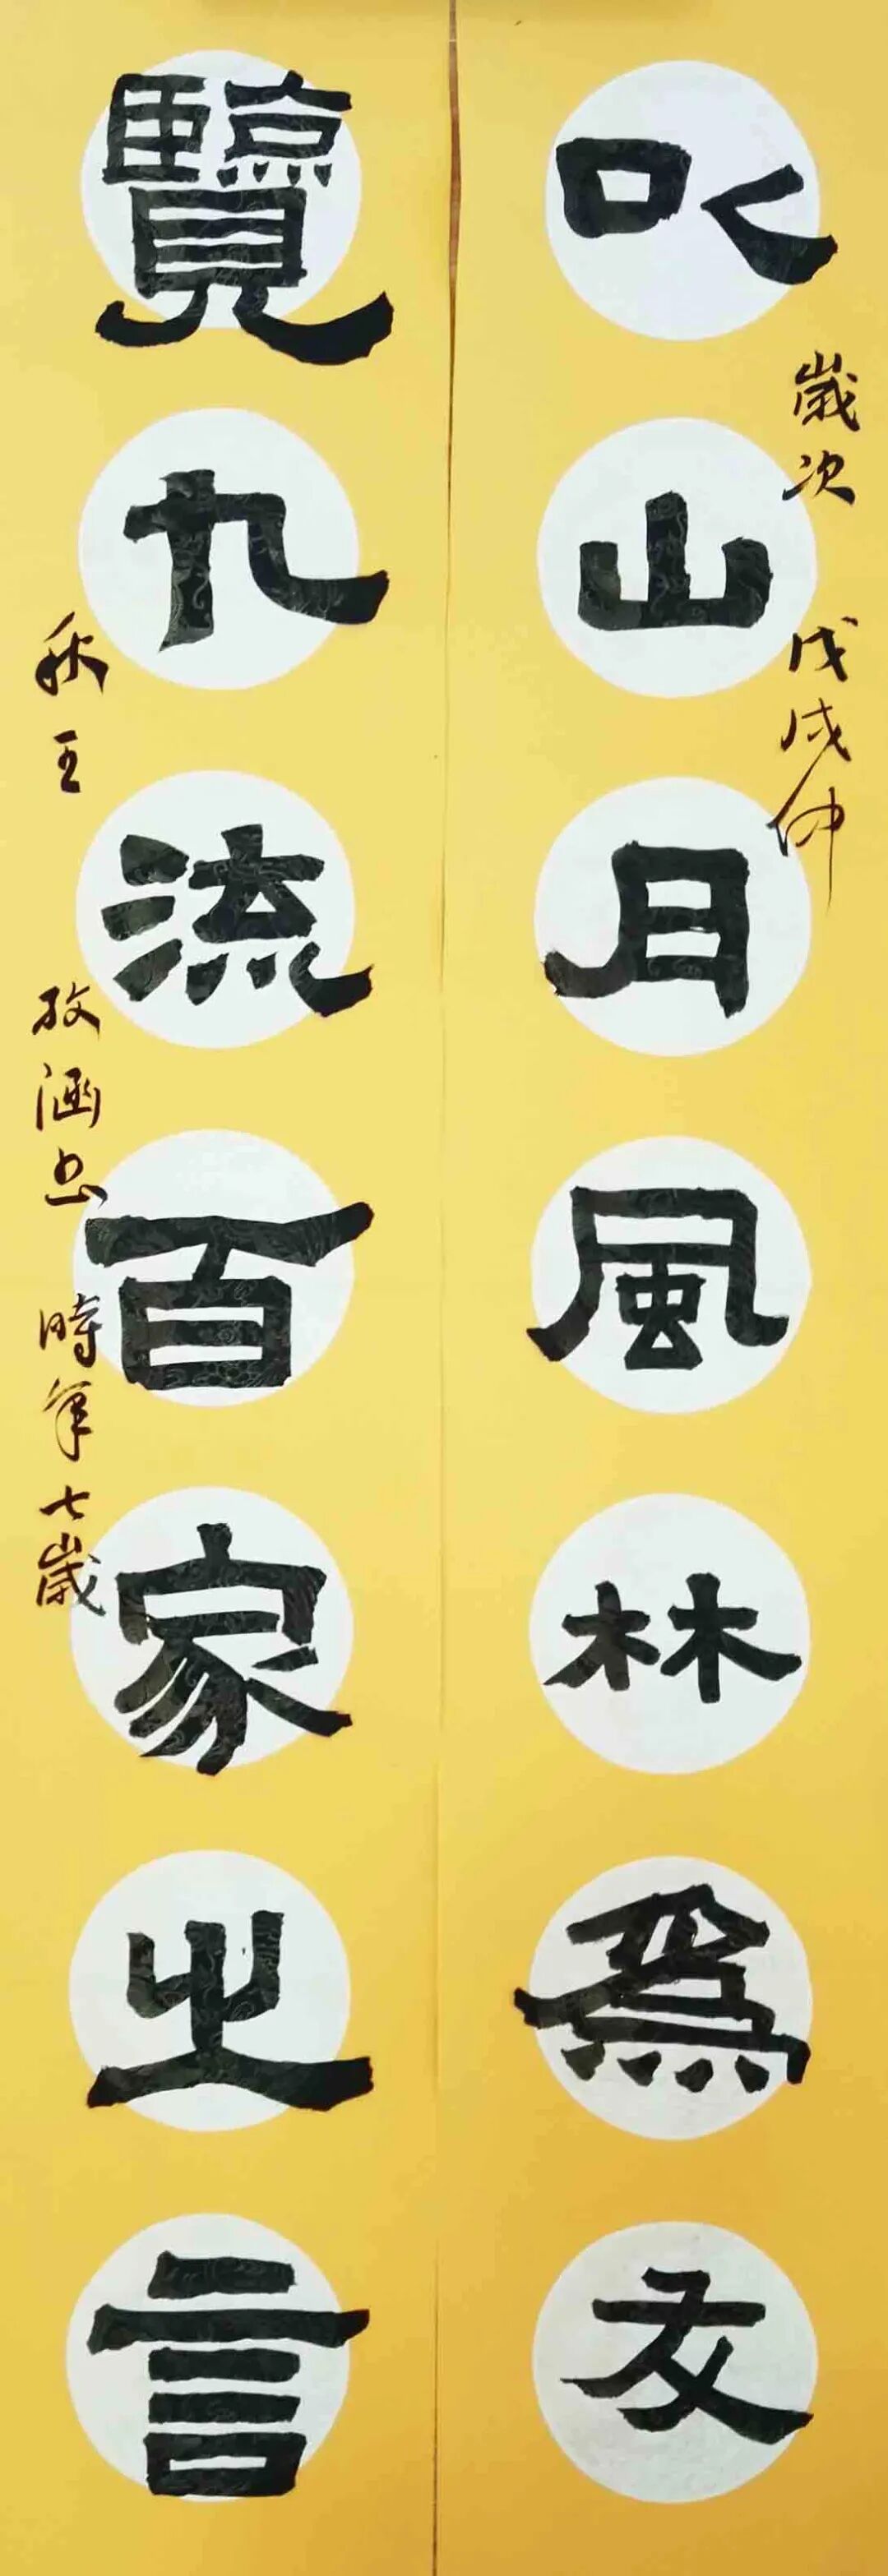 以山月風林爲友
歲次戊戌仲
覽九流百家之言
秋王孜涵书時年七歲